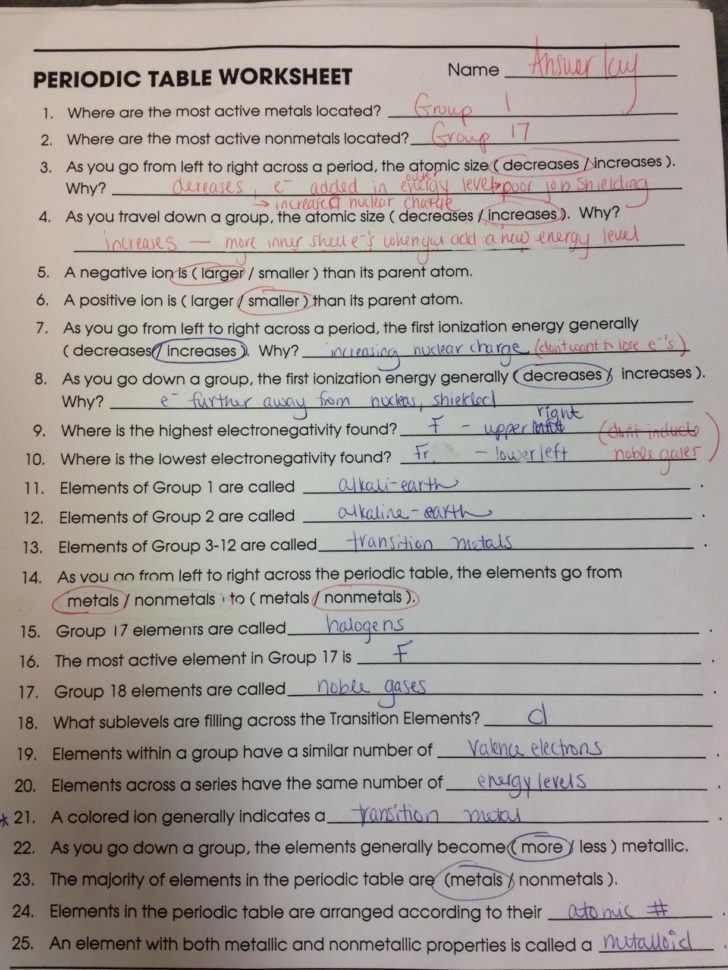 Name Answer key
PERIODIC TABLE WORKSHEET
1. Where are the most active metals located? Group 1
2. Where are the most active nonmetals located? Group 17
3. As you go from left to right across a period, the atomic size ( decreases / increases ).
Why? dereases, e⁻ added in outer energy level → poor job shielding
→ increased nuclear charge
4. As you travel down a group, the atomic size ( decreases / increases ). Why?
increases — more inner shell e⁻'s when you add a new energy level
5. A negative ion is ( larger / smaller ) than its parent atom.
6. A positive ion is ( larger / smaller ) than its parent atom.
7. As you go from left to right across a period, the first ionization energy generally
( decreases / increases ). Why? increasing nuclear charge (don't want to lose e⁻'s)
8. As you go down a group, the first ionization energy generally ( decreases / increases ).
Why? e⁻ further away from nucleus, shielded
9. Where is the highest electronegativity found? F - upper right
10. Where is the lowest electronegativity found? Fr - lower left (don't include noble gases)
11. Elements of Group 1 are called alkali-earth .
12. Elements of Group 2 are called alkaline-earth .
13. Elements of Group 3-12 are called transition metals .
14. As you go from left to right across the periodic table, the elements go from
( metals / nonmetals ) to ( metals / nonmetals ).
15. Group 17 elements are called halogens .
16. The most active element in Group 17 is F .
17. Group 18 elements are called noble gases .
18. What sublevels are filling across the Transition Elements? d
19. Elements within a group have a similar number of valence electrons .
20. Elements across a series have the same number of energy levels .
* 21. A colored ion generally indicates a transition metal .
22. As you go down a group, the elements generally become ( more / less ) metallic.
23. The majority of elements in the periodic table are (metals / nonmetals ).
24. Elements in the periodic table are arranged according to their atomic # .
25. An element with both metallic and nonmetallic properties is called a metalloid .